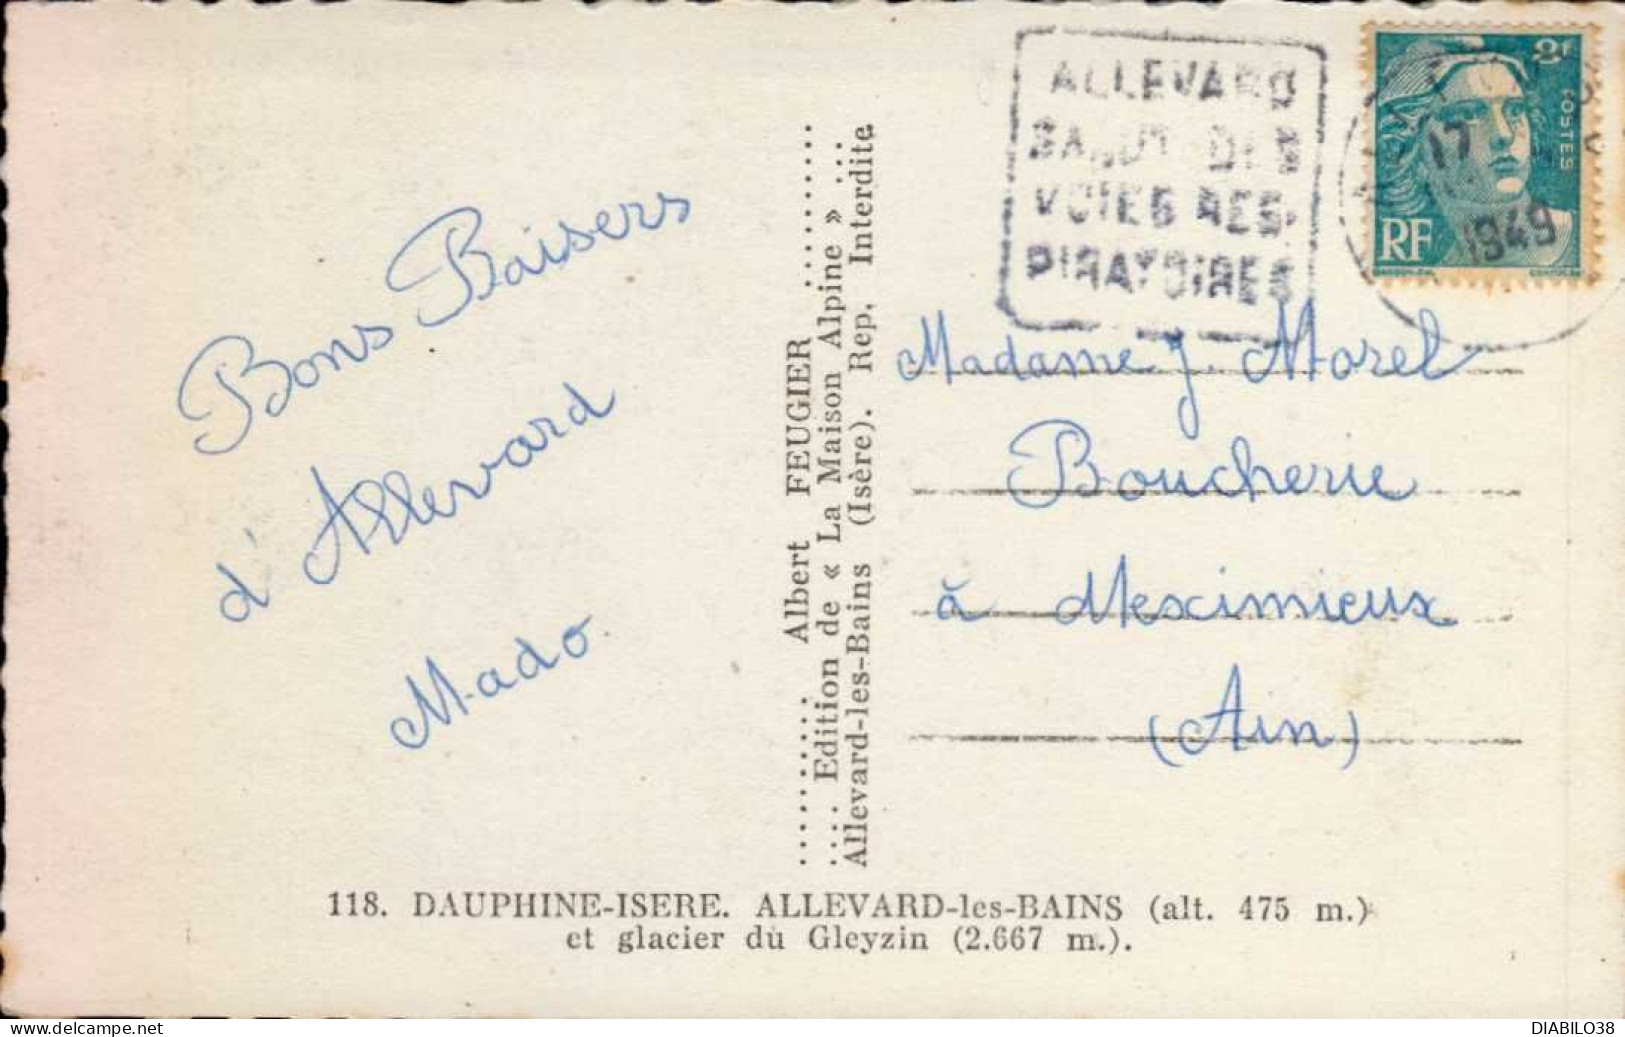 Bons Baisers
d'Allevard
Mado
Albert FEUGIER
Edition de « La Maison Alpine »
Allevard-les-Bains (Isère). Rep. Interdite
ALLEVARD
SANTE DES
VOIES RES-
PIRATOIRES
2F
POSTES
RF
17
1949
Madame J. Morel
Boucherie
à Meximieux
(Ain)
118. DAUPHINE-ISERE. ALLEVARD-les-BAINS (alt. 475 m.)
et glacier du Gleyzin (2.667 m.).
Delcampe.net
DIABILO38